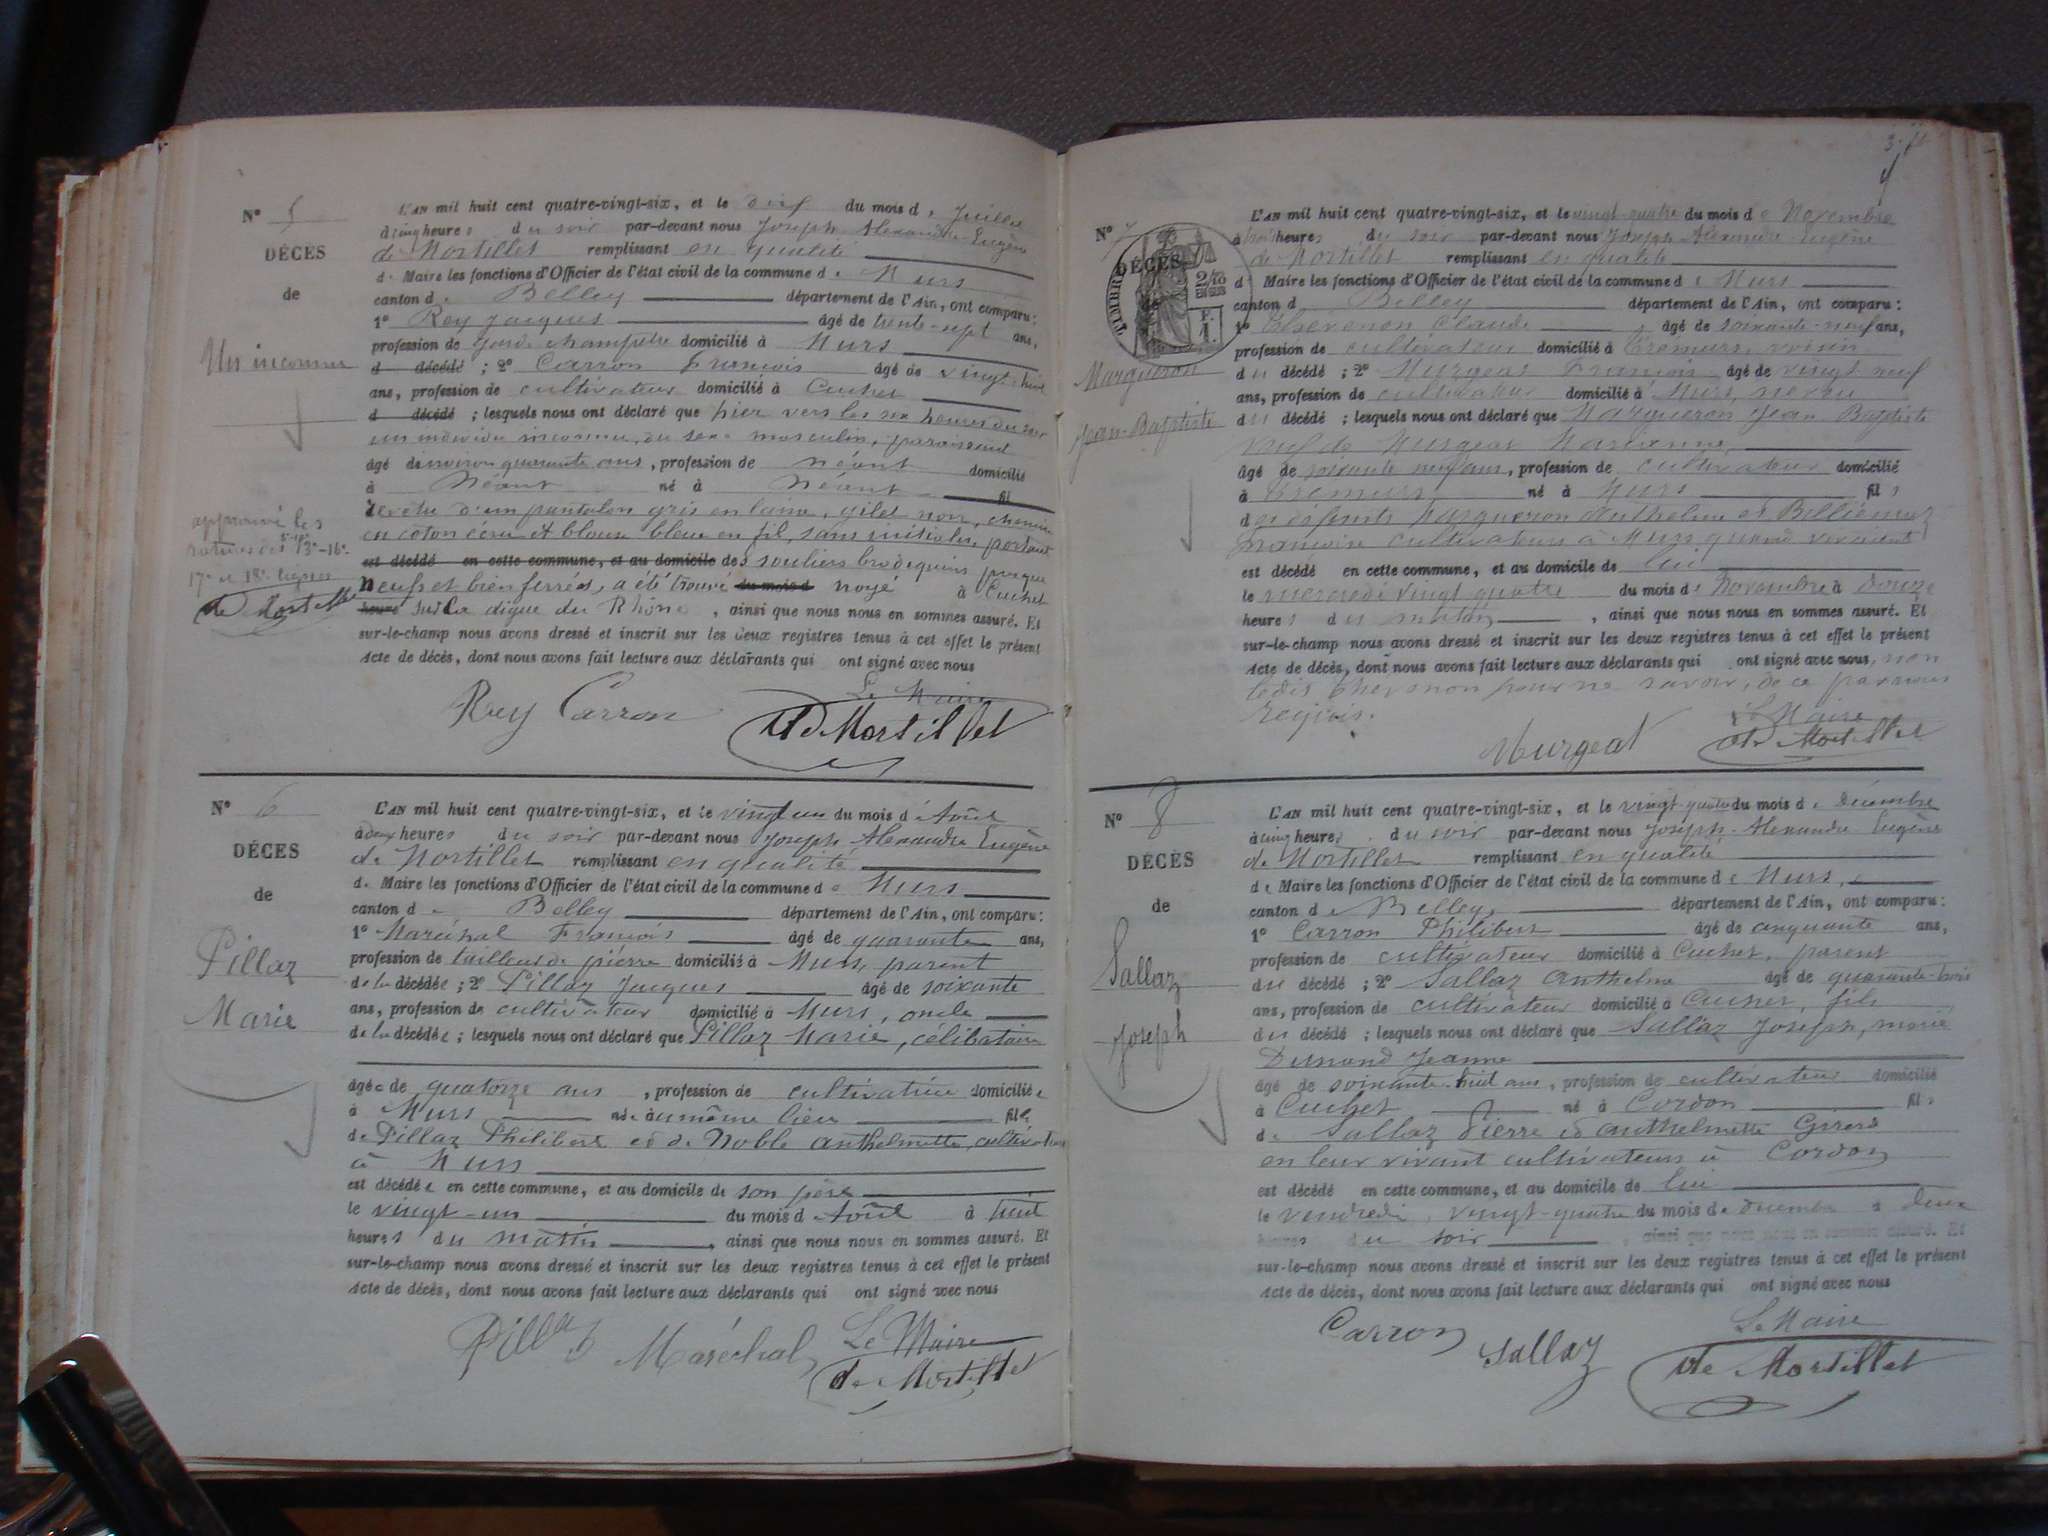 N° 5
DÉCÈS
de
Un inconnu
approuvé les
ratures des 13e-16e
17e et 18e lignes
de Mortillet
L'AN mil huit cent quatre-vingt-six, et le onze du mois de Juillet
à cinq heures du soir par-devant nous Joseph-Alexandre-Eugène
de Mortillet remplissant en qualité
de Maire les fonctions d'Officier de l'état civil de la commune de Murs
canton de Belley département de l'Ain, ont comparu:
1° Rey Jacques âgé de trente-sept ans,
profession de garde champêtre domicilié à Murs
d décédé ; 2° Carron François âgé de vingt-huit
ans, profession de cultivateur domicilié à Cuchet
d décédé ; lesquels nous ont déclaré que hier vers les six heures du soir
un individu inconnu, du sexe masculin, paraissant
âgé de environ quarante ans, profession de néant domicilié
à Néant né à Néant fil
revêtu d'un pantalon gris en laine, gilet noir, chemise
en coton écru et blouse bleue en fil, sans initiales, portant
est décédé en cette commune, et au domicile de s souliers brodequins presque
neufs et bien ferrés, a été trouvé du mois d noyé à Cuchet
heure sur la digue du Rhône, ainsi que nous nous en sommes assuré. Et
sur-le-champ nous avons dressé et inscrit sur les deux registres tenus à cet effet le présent
Acte de décès, dont nous avons fait lecture aux déclarants qui ont signé avec nous
Le Maire
Rey Carron de Mortillet
N° 6
DÉCÈS
de
Pillaz
Marie
L'AN mil huit cent quatre-vingt-six, et le vingt un du mois d'Août
à deux heures du soir par-devant nous Joseph Alexandre Eugène
de Mortillet remplissant en qualité
de Maire les fonctions d'Officier de l'état civil de la commune de Murs
canton de Belley département de l'Ain, ont comparu:
1° Maréchal François âgé de quarante ans,
profession de tailleur de pierre domicilié à Murs, parent
de la décédée ; 2° Pillaz Jacques âgé de soixante
ans, profession de cultivateur domicilié à Murs, oncle
de la décédée ; lesquels nous ont déclaré que Pillaz Marie, célibataire
âgée de quatorze ans, profession de cultivatrice domiciliée
à Murs née à u même lieu fille
de Pillaz Philibert et de Noble Anthelmette, cultivateurs
à Murs
est décédée en cette commune, et au domicile de son père
le vingt-un du mois d'Août à huit
heures du matin, ainsi que nous nous en sommes assuré. Et
sur-le-champ nous avons dressé et inscrit sur les deux registres tenus à cet effet le présent
Acte de décès, dont nous avons fait lecture aux déclarants qui ont signé avec nous
Pillaz Maréchal Le Maire
de Mortillet
N° 7
DÉCÈS
de
TIMBRE
Margueron
Jean-Baptiste
L'AN mil huit cent quatre-vingt-six, et le vingt-quatre du mois de Novembre
à trois heures du soir par-devant nous Joseph Alexandre Eugène
de Mortillet remplissant en qualité
de Maire les fonctions d'Officier de l'état civil de la commune de Murs
canton d Belley département de l'Ain, ont comparu:
1° Thévenon Claude âgé de soixante-neuf ans,
profession de cultivateur domicilié à Crémurs, voisin
du décédé ; 2° Murgeat François âgé de vingt neuf
ans, profession de cultivateur domicilié à Murs, neveu
du décédé ; lesquels nous ont déclaré que Margueron Jean Baptiste
veuf de Murgeat Marianne,
âgé de soixante neuf ans, profession de cultivateur domicilié
à Crémurs né à Murs fils
des défunts Margueron Anthelme et Billiemaz
Françoise cultivateurs à Murs quand vivaient
est décédé en cette commune, et au domicile de lui
le mercredi vingt quatre du mois de Novembre à douze
heures du matin, ainsi que nous nous en sommes assuré. Et
sur-le-champ nous avons dressé et inscrit sur les deux registres tenus à cet effet le présent
Acte de décès, dont nous avons fait lecture aux déclarants qui ont signé avec nous, non
ledit pour ne savoir, de ce par nous
requis.
Murgeat Le Maire
de Mortillet
N° 8
DÉCÈS
de
Sallaz
Joseph
L'AN mil huit cent quatre-vingt-six, et le vingt-quatre du mois de Décembre
à cinq heures du soir par-devant nous Joseph-Alexandre Eugène
de Mortillet remplissant en qualité
de Maire les fonctions d'Officier de l'état civil de la commune de Murs,
canton de Belley, département de l'Ain, ont comparu:
1° Carron Philibert âgé de cinquante ans,
profession de cultivateur domicilié à Cuchet, parent
du décédé ; 2° Sallaz Anthelme âgé de quarante-trois
ans, profession de cultivateur domicilié à Cuchet, fils
du décédé ; lesquels nous ont déclaré que Sallaz Joseph, marié
Dunand Jeanne
âgé de soixante-huit ans, profession de cultivateur domicilié
à Cuchet né à Cordon fils
de Sallaz Pierre et Anthelmette Girerd
en leur vivant cultivateurs à Cordon
est décédé en cette commune, et au domicile de lui
le vendredi, vingt-quatre du mois de Décembre à deux
heures du soir, ainsi que nous nous en sommes assuré. Et
sur-le-champ nous avons dressé et inscrit sur les deux registres tenus à cet effet le présent
Acte de décès, dont nous avons fait lecture aux déclarants qui ont signé avec nous
Carron Sallaz Le Maire
de Mortillet